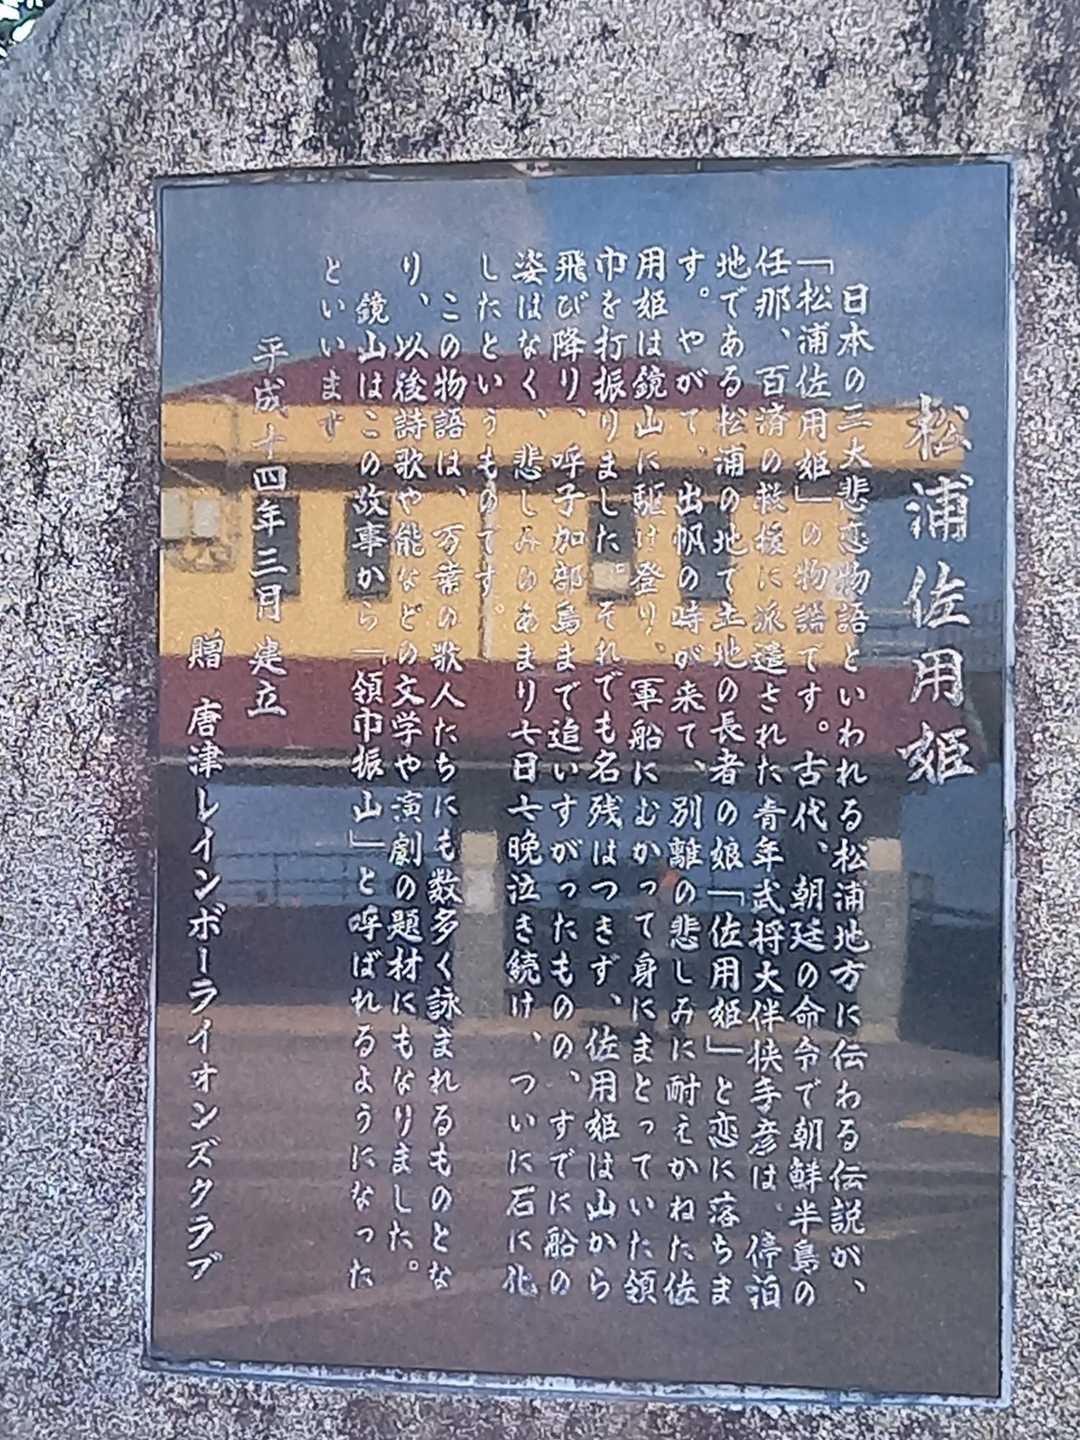 松浦佐用姫
日本の三大悲恋物語といわれる松浦地方に伝わる伝説が、
「松浦佐用姫」の物語です。古代、朝廷の命令で朝鮮半島の
任那、百済の救援に派遣された青年武将大伴狭手彦は、停泊
地である松浦の地で土地の長者の娘「佐用姫」と恋に落ちま
す。やがて、出帆の時が来て、別離の悲しみに耐えかねた佐
用姫は鏡山に駆け登り、軍船にむかって身にまとっていた領
巾を打振りました。それでも名残はつきず、佐用姫は山から
飛び降り、呼子加部島まで追いすがったものの、すでに船の
姿はなく、悲しみのあまり七日七晩泣き続け、ついに石に化
したというものです。
この物語は、万葉の歌人たちにも数多く詠まれるものとな
り、以後詩歌や能などの文学や演劇の題材にもなりました。
鏡山はこの故事から「領巾振山」と呼ばれるようになった
といいます
平成十四年三月 建立
贈 唐津レインボーライオンズクラブ